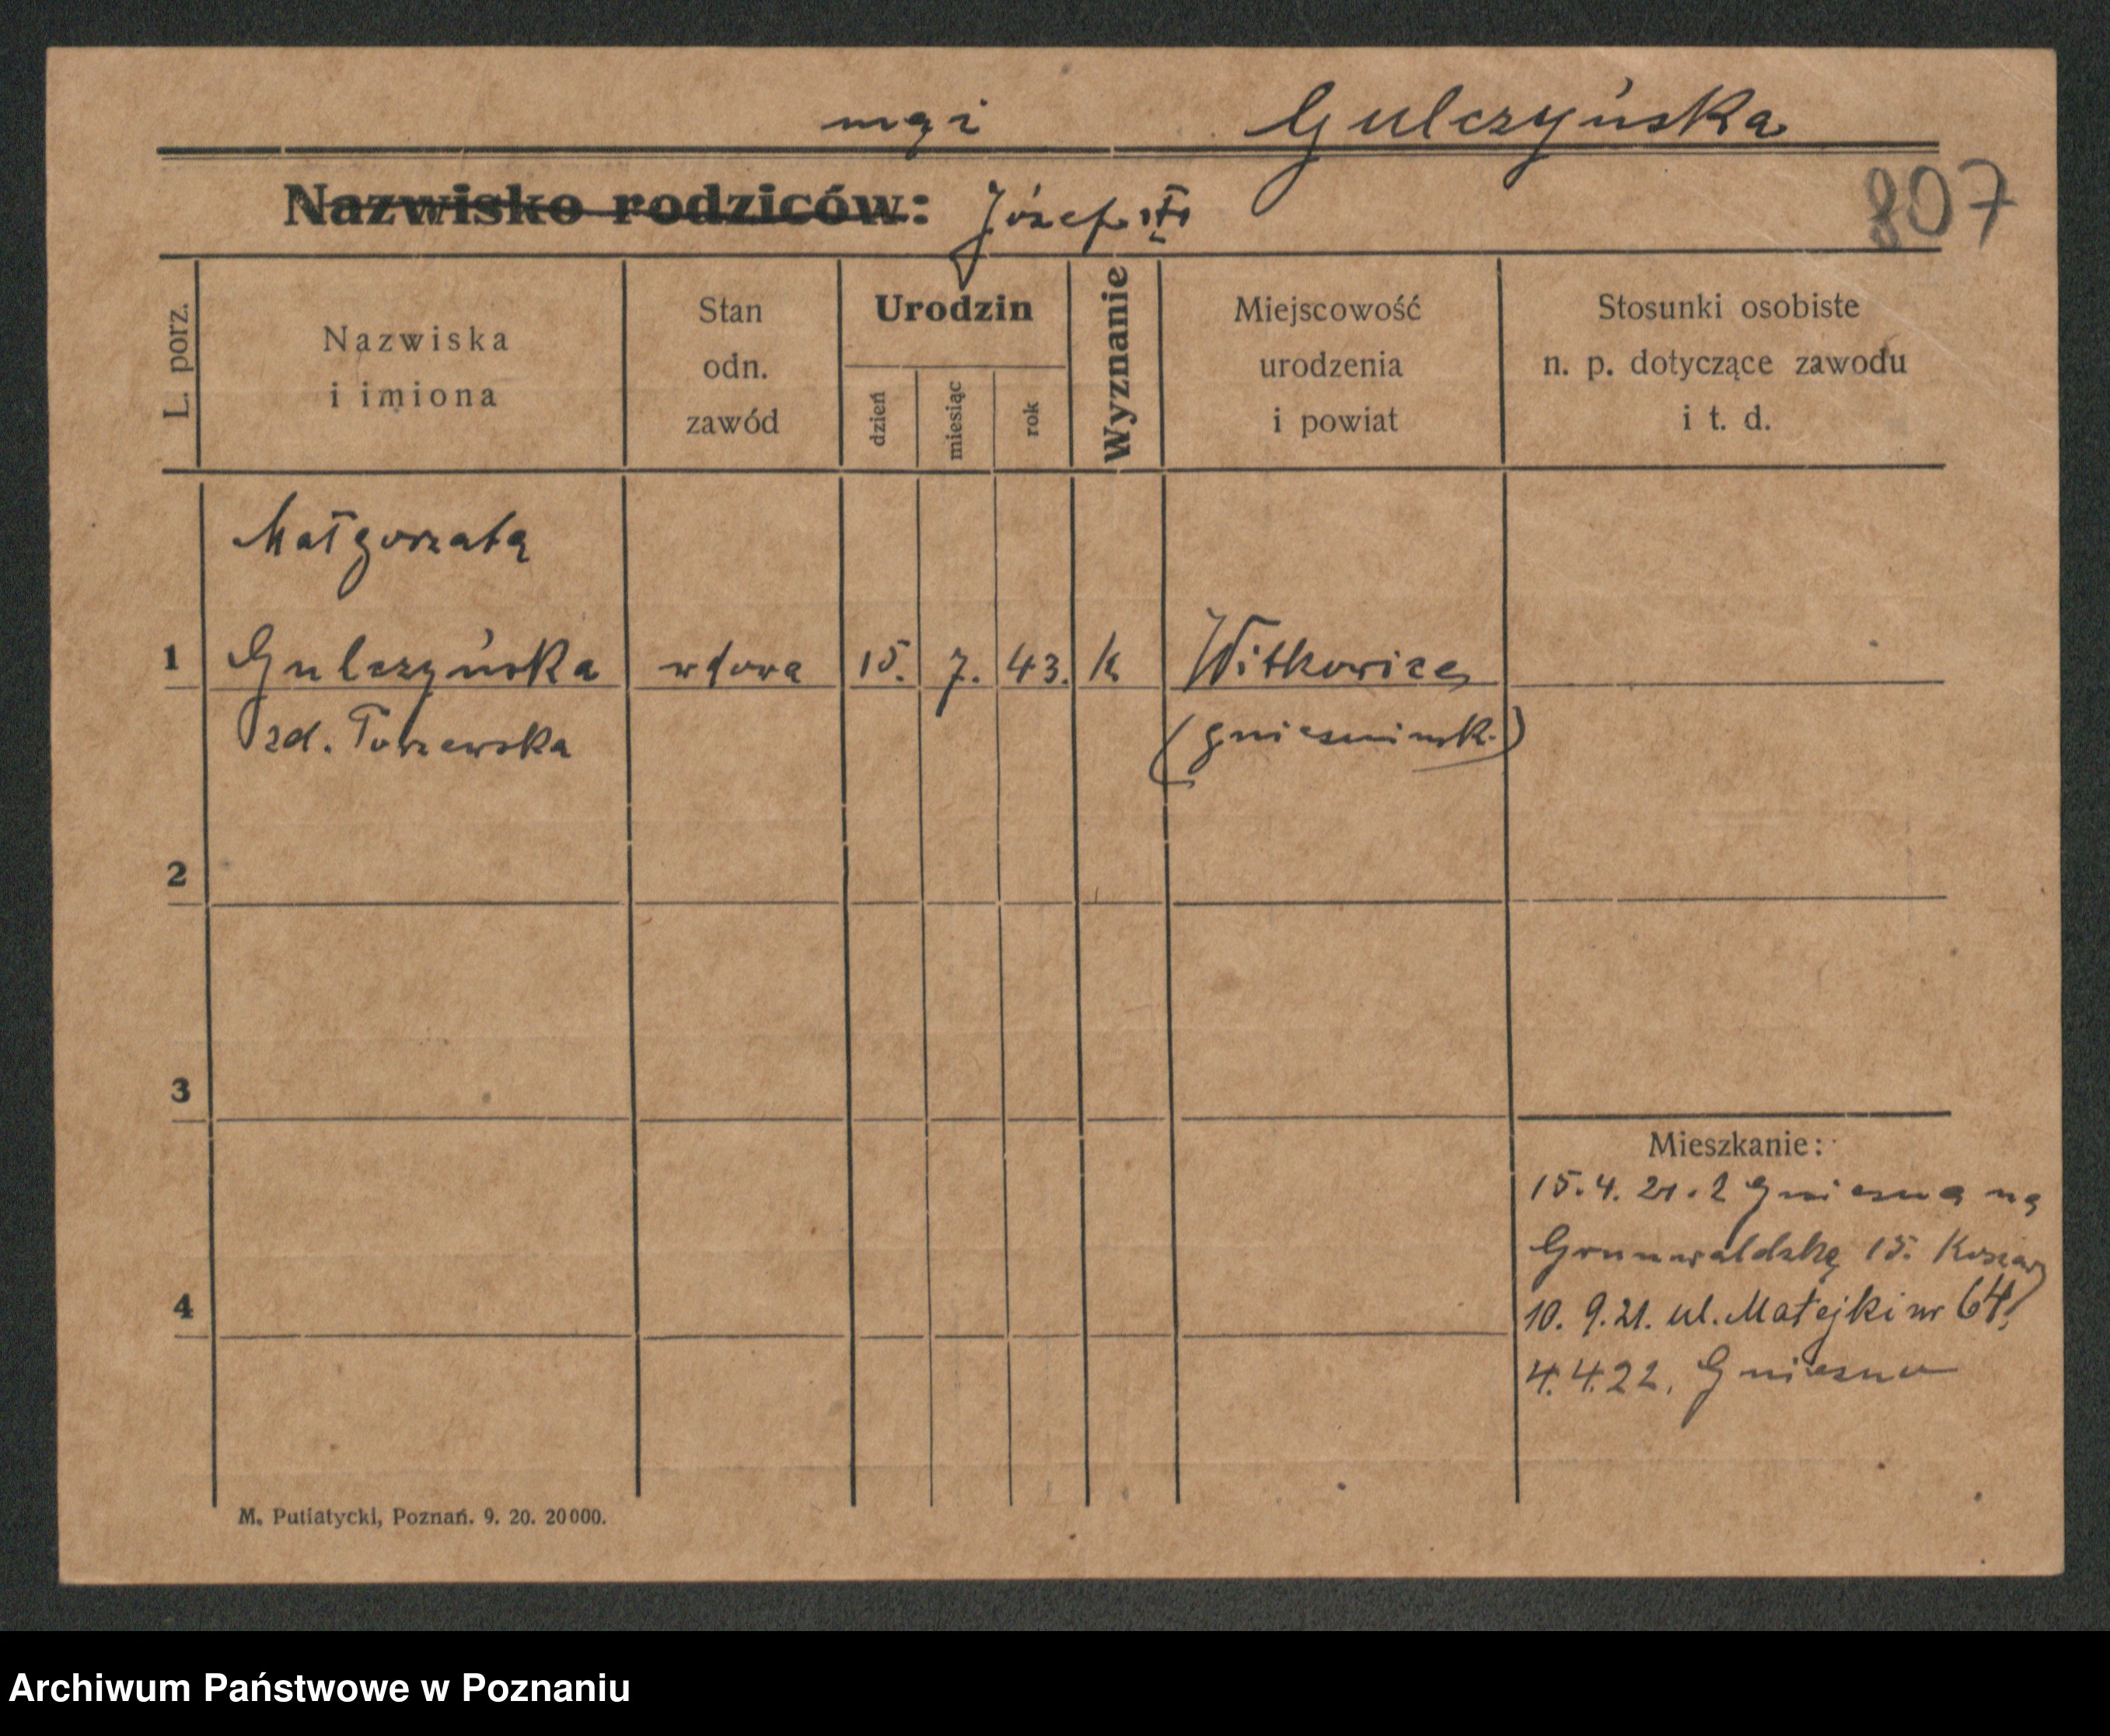 mąż Gulczyńska
Nazwisko rodziców: Józef
807
L. porz.
Nazwiska
i imiona
Stan
odn.
zawód
Urodzin
dzień
miesiąc
rok
Wyznanie
Miejscowość
urodzenia
i powiat
Stosunki osobiste
n. p. dotyczące zawodu
i t. d.
Małgorzata
1 Gulczyńska wdowa 15. 7. 43. k Witkowice
zd. (gnieznińsk.)
2
3
4
Mieszkanie:
15.4.21. z Gniezna na
Grunwaldzką 15.
10.9.21. ul. Matejki nr 64.
4.4.22. Gniezno
M. Putiatycki, Poznań. 9. 20. 20000.
Archiwum Państwowe w Poznaniu